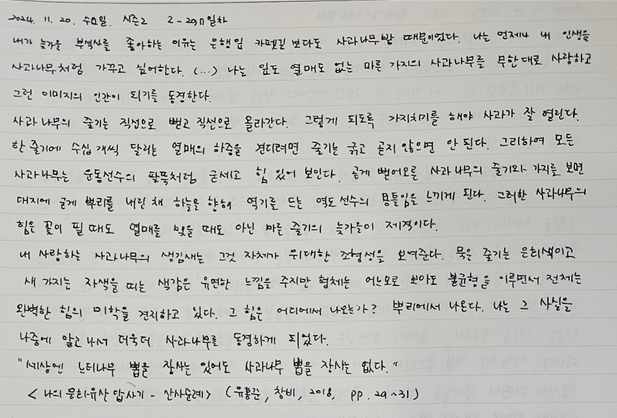 2024. 11. 20. 수요일. 시즌2 2-29일차
내가 늦가을 부석사를 좋아하는 이유는 은행잎 카펫길보다도 사과나무밭 때문이었다. 나는 언제나 내 인생을
사과나무처럼 가꾸고 싶어한다. (...) 나는 잎도 열매도 없는 마른 가지의 사과나무를 무한대로 사랑하고
그런 이미지의 인간이 되기를 동경한다.
사과나무의 줄기는 직선으로 뻗고 직선으로 올라간다. 그렇게 되도록 가지치기를 해야 사과가 잘 열린다.
한 줄기에 수십 개씩 달리는 열매의 하중을 견디려면 줄기는 굵고 곧지 않으면 안 된다. 그리하여 모든
사과나무는 운동선수의 팔뚝처럼 굳세고 힘 있어 보인다. 곧게 뻗어오른 사과나무의 줄기와 가지를 보면
대지에 굳게 뿌리를 내린 채 하늘을 향해 역기를 드는 역도 선수의 모습을 느끼게 된다. 그러한 사과나무의
힘은 꽃이 필 때도 열매를 맺을 때도 아닌 마른 줄기의 늦가을이 제격이다.
내 사랑하는 사과나무의 생김새는 그것 자체가 위대한 조형성을 보여준다. 묵은 줄기는 은회색이고
새 가지는 자색을 띠는 색감은 유연한 느낌을 주지만 형체는 어느모로 보아도 불균형을 이루면서 전체는
완벽한 힘의 미학을 견지하고 있다. 그 힘은 어디에서 나오는가? 뿌리에서 나온다. 나는 그 사실을
나중에 알고 나서 더욱더 사과나무를 동경하게 되었다.
"세상엔 느티나무 뽑을 장사는 있어도 사과나무 뽑을 장사는 없다."
<나의 문화유산 답사기 - 산사순례> (유홍준, 창비, 2018, pp. 29~31)